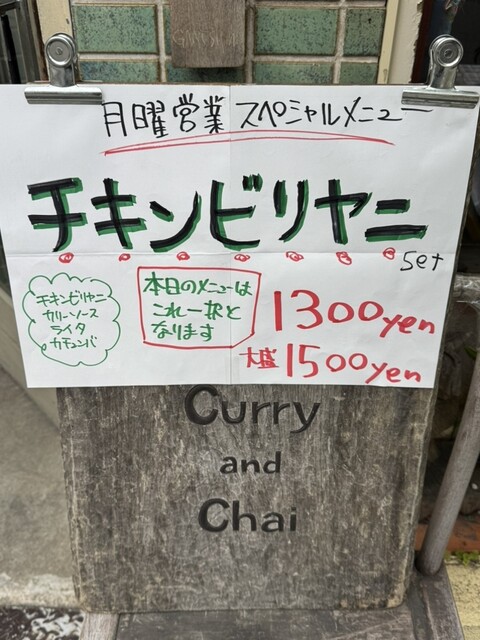 月曜営業 スペシャルメニュー
チキンビリヤニ
set
チキンビリヤニ
カリーソース
ライタ
カチュンバ
本日のメニューは
これ一択と
なります
1300yen
大盛1500yen
Curry
and
Chai